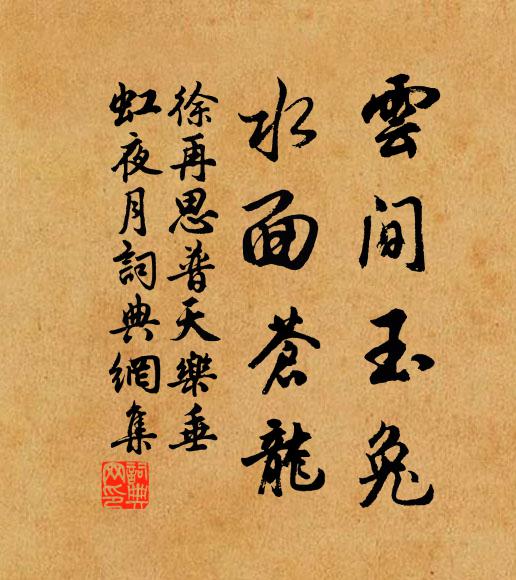 雲間玉兔
水面蒼龍
徐再思普天樂垂
虹夜月詞典網集
詞典網印